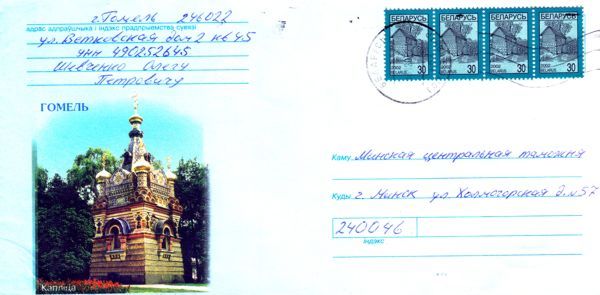 г. Гомель 246022
адрас адпраўшчыка і індэкс прадпрыемства сувязі
ул. Ветковская дом 2 кв 45
УНН 490252645
Шевченко Олегу
Петровичу
БЕЛАРУСЬ БЕЛАРУСЬ БЕЛАРУСЬ БЕЛАРУСЬ
2002 30 2002 30 2002 30 2002 30
BELARUS BELARUS BELARUS BELARUS
ГОМЕЛЬ
Капліца
Каму Минская центральная таможня
Куды г. Минск ул. Холмогорская д. №57
240046
індэкс